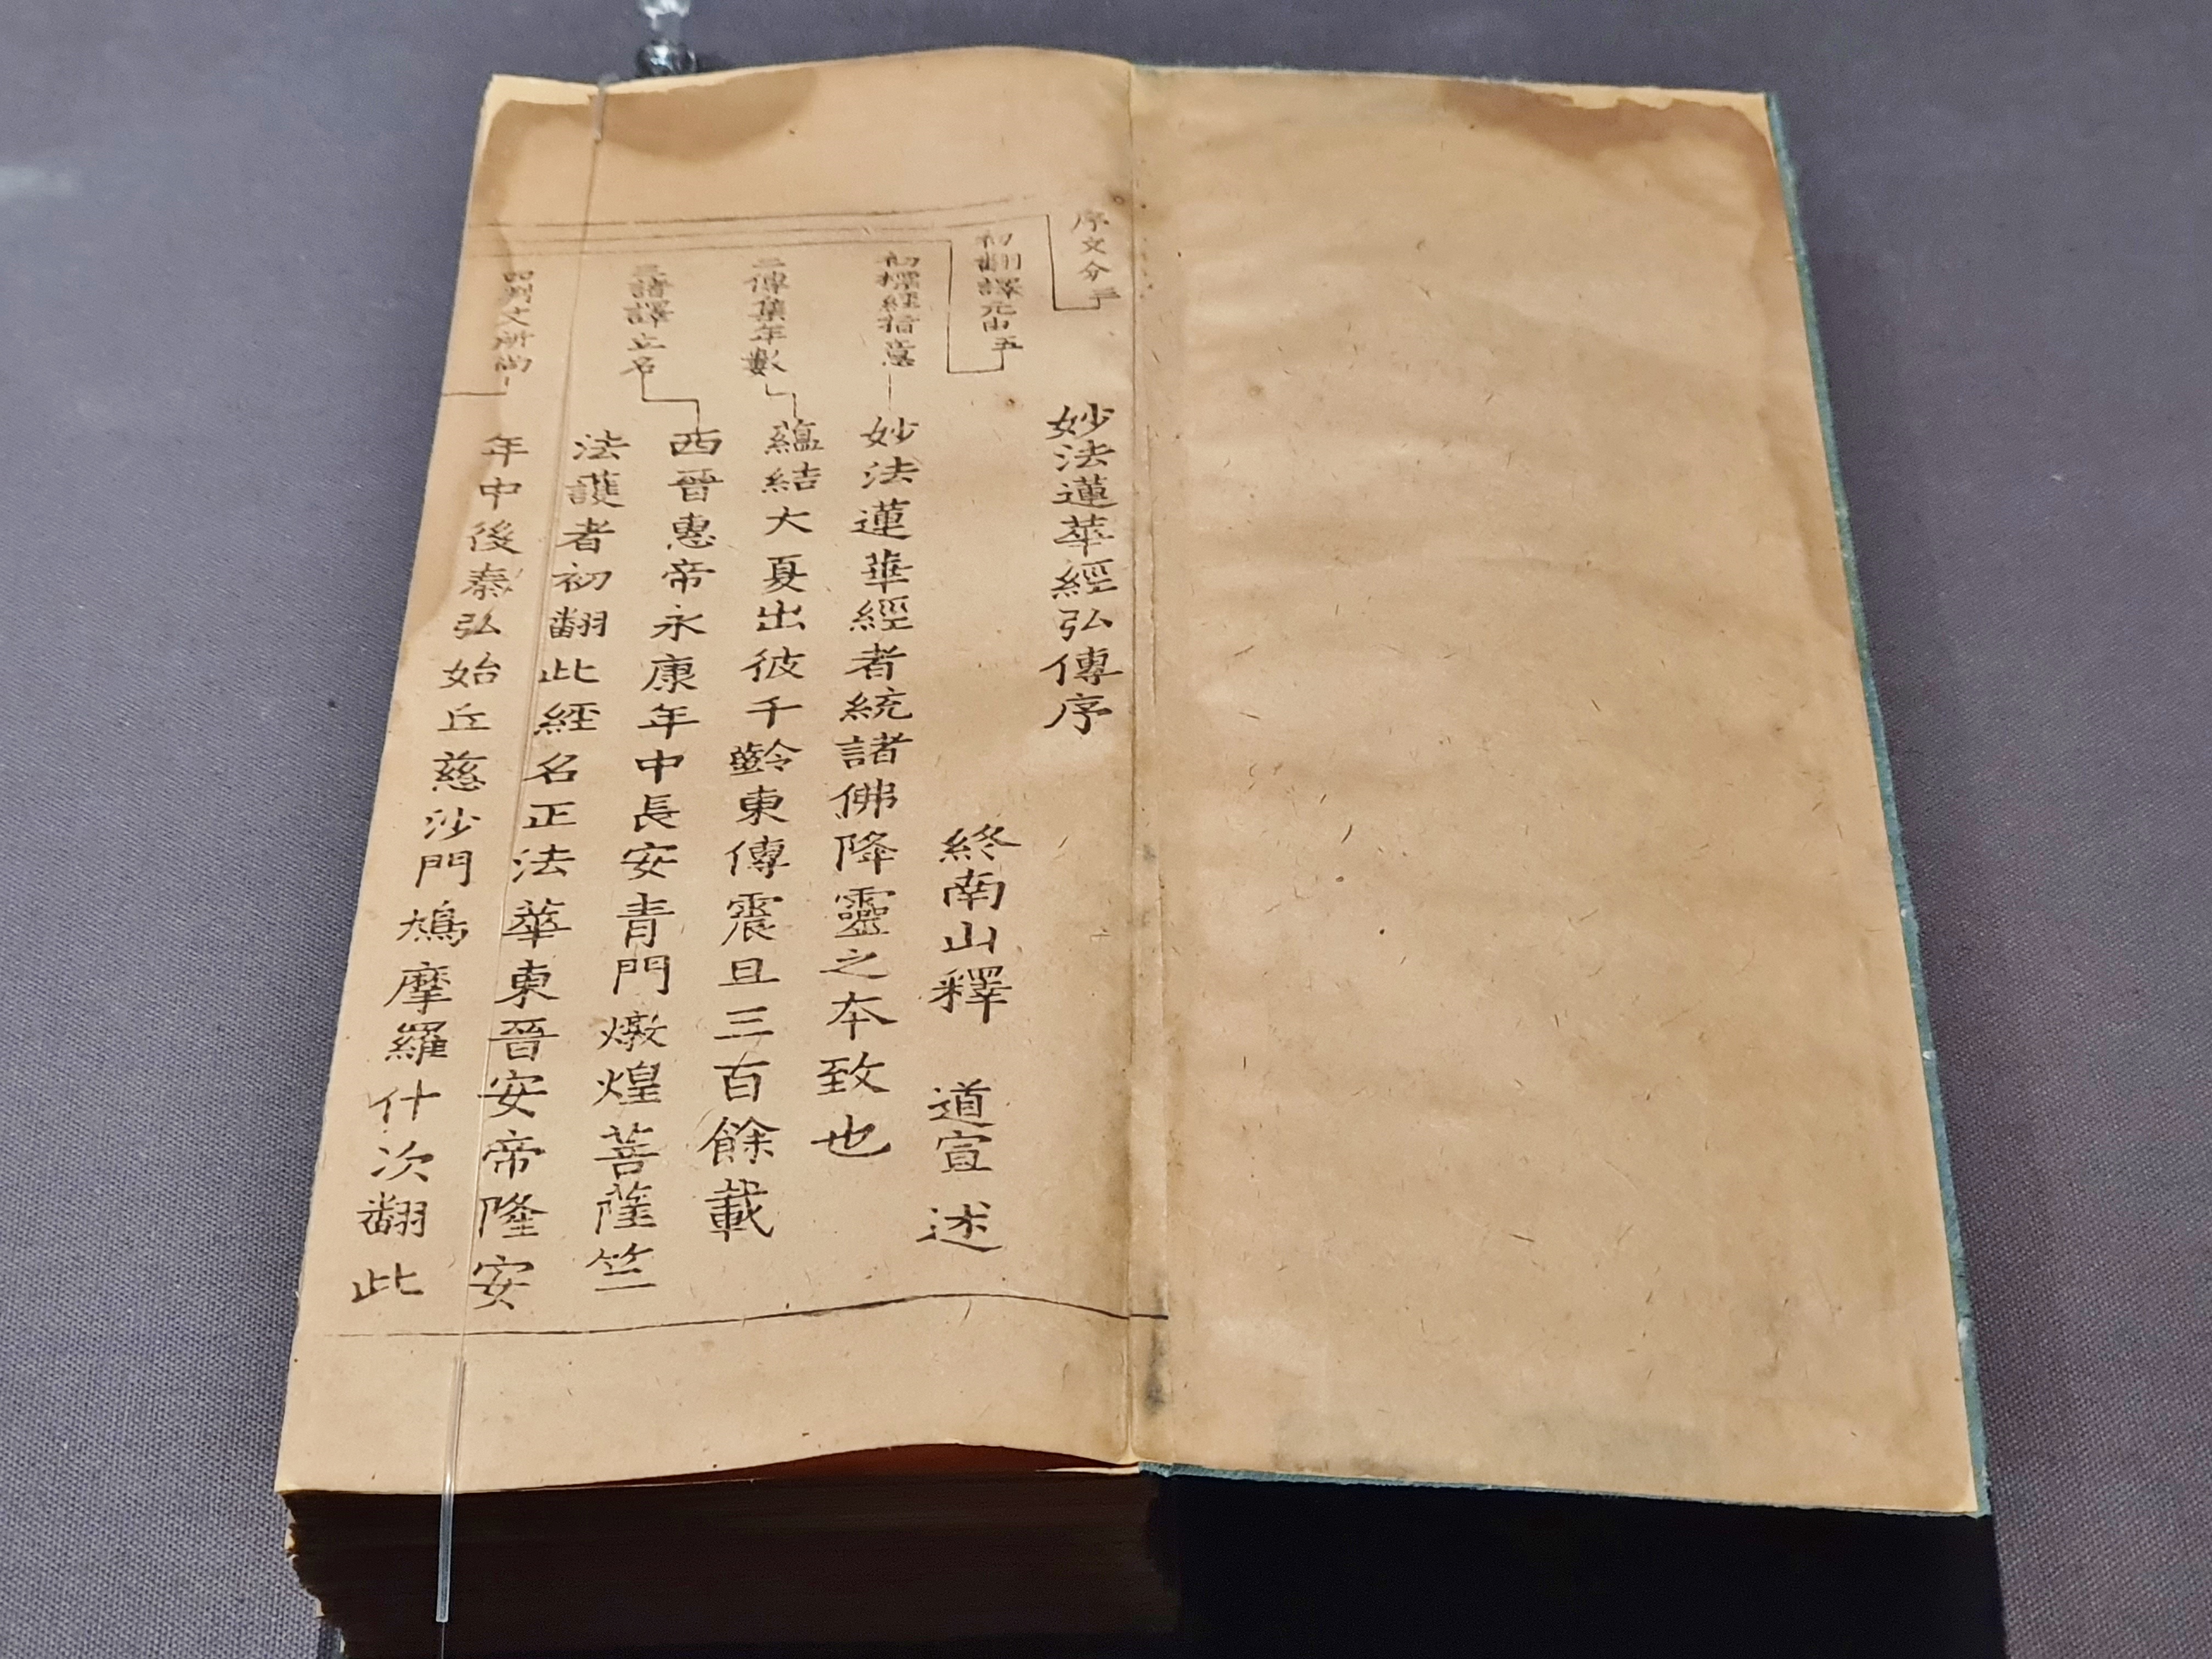 序文分三
初翻譯元由五
初標經指意
二傳集年數
三諸譯立名
妙法蓮華經弘傳序
終南山釋 道宣 述
妙法蓮華經者統諸佛降靈之本致也
蘊結大夏出彼千齡東傳震旦三百餘載
西晉惠帝永康年中長安青門燉煌菩薩竺
法護者初翻此經名正法華東晉安帝隆安
年中後秦弘始丘慈沙門鳩摩羅什次翻此